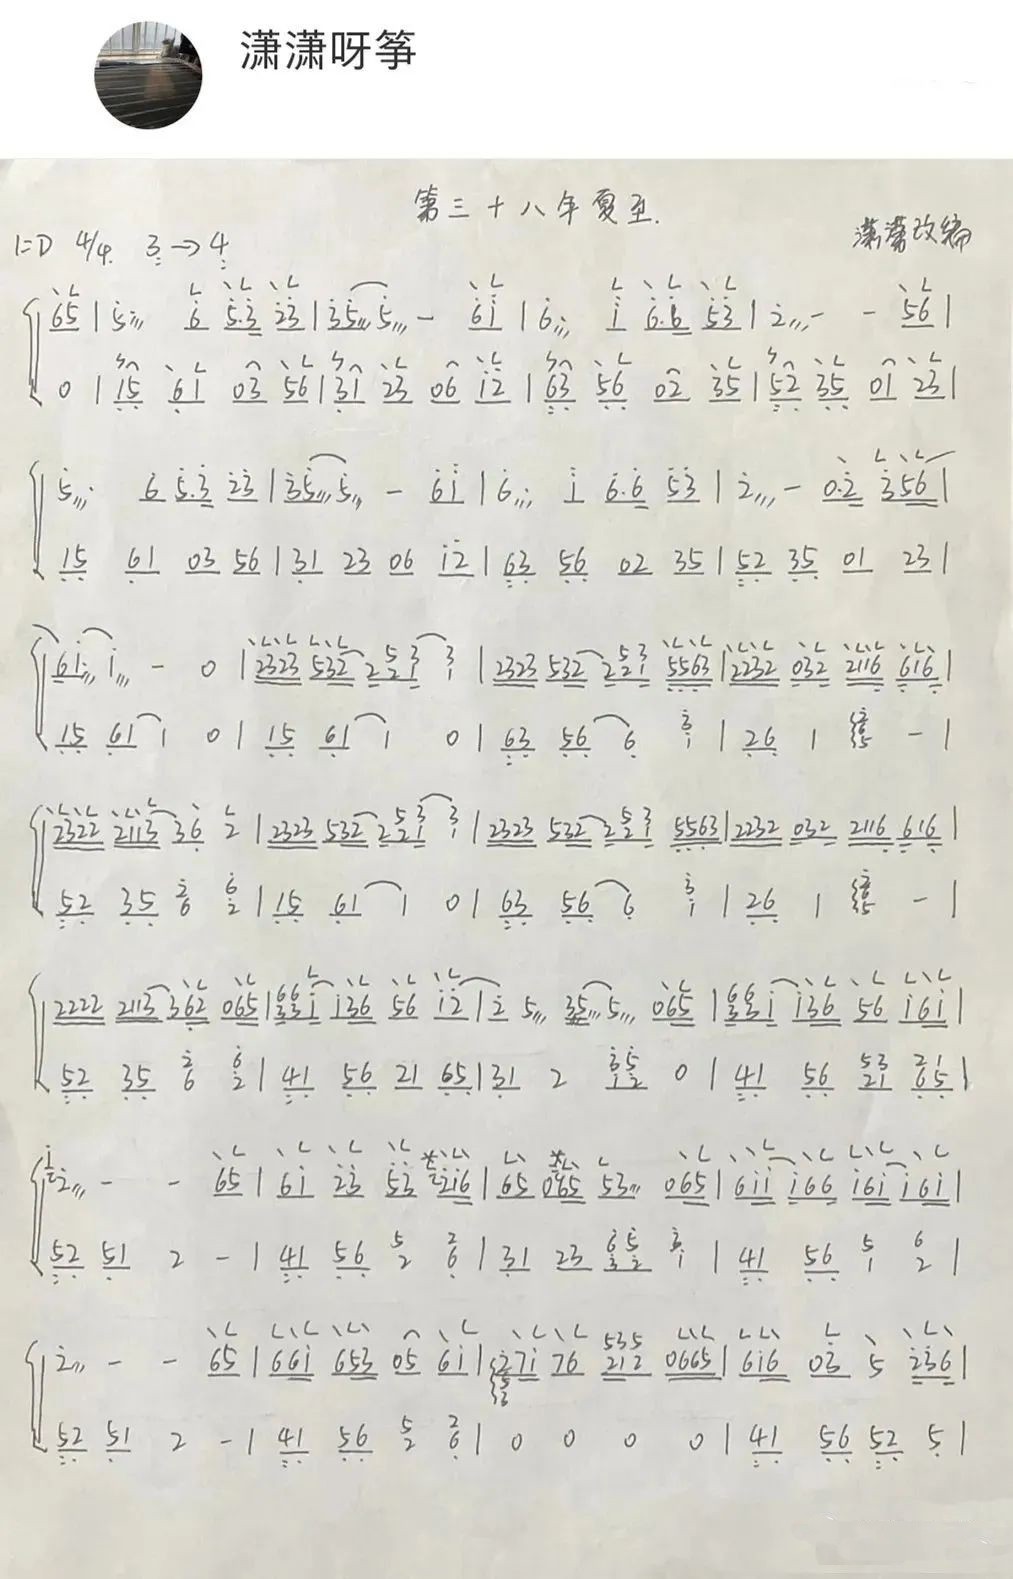 潇潇呀筝
第三十八年夏至.
1=D 4/4 3→4
潇潇改编
65 | 5 6 5.3 23 | 35 5 - 61 | 6 1 6.6 53 | 2 - - 56 |
0 | 15 61 03 56 | 31 23 06 12 | 63 56 02 35 | 52 35 01 23 |
5 6 5.3 23 | 35 5 - 61 | 6 1 6.6 53 | 2 - 0.2 356 |
15 61 03 56 | 31 23 06 12 | 63 56 02 35 | 52 35 01 23 |
61 1 - 0 | 2323 532 2 | 2323 532 2 5563 | 2232 032 2116 616 |
15 61 1 0 | 15 61 1 0 | 63 56 6 | 26 1 - |
2322 2113 36 2 | 2323 532 2 | 2323 532 2 5563 | 2232 032 2116 616 |
52 35 | 15 61 1 0 | 63 56 6 | 26 1 - |
2222 2113 362 065 | 1 136 56 12 | 2 5 35 5 065 | 1 136 56 161 |
52 35 | 41 56 21 65 | 31 2 0 | 41 56
2 - - 65 | 61 23 53 216 | 65 065 53 065 | 611 166 161 161 |
52 51 2 - | 41 56 | 31 23 | 41 56
2 - - 65 | 661 653 05 61 | 271 76 212 0665 | 616 03 5 236 |
52 51 2 - | 41 56 | 0 0 0 0 | 41 56 52 5 |